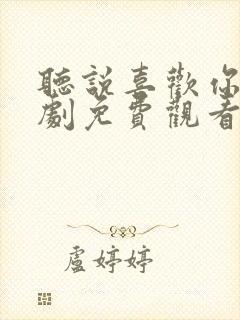 聽說喜歡你
劇免費觀看
盧婷婷